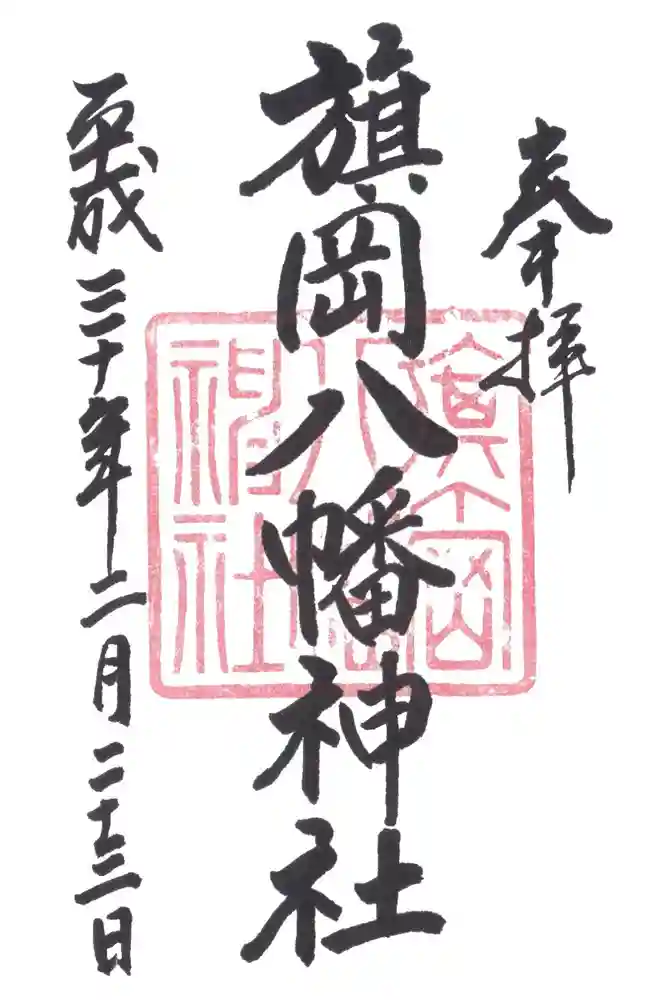 奉拝
旗岡八幡神社
平成三十年二月二十三日
旗岡
八幡
神社